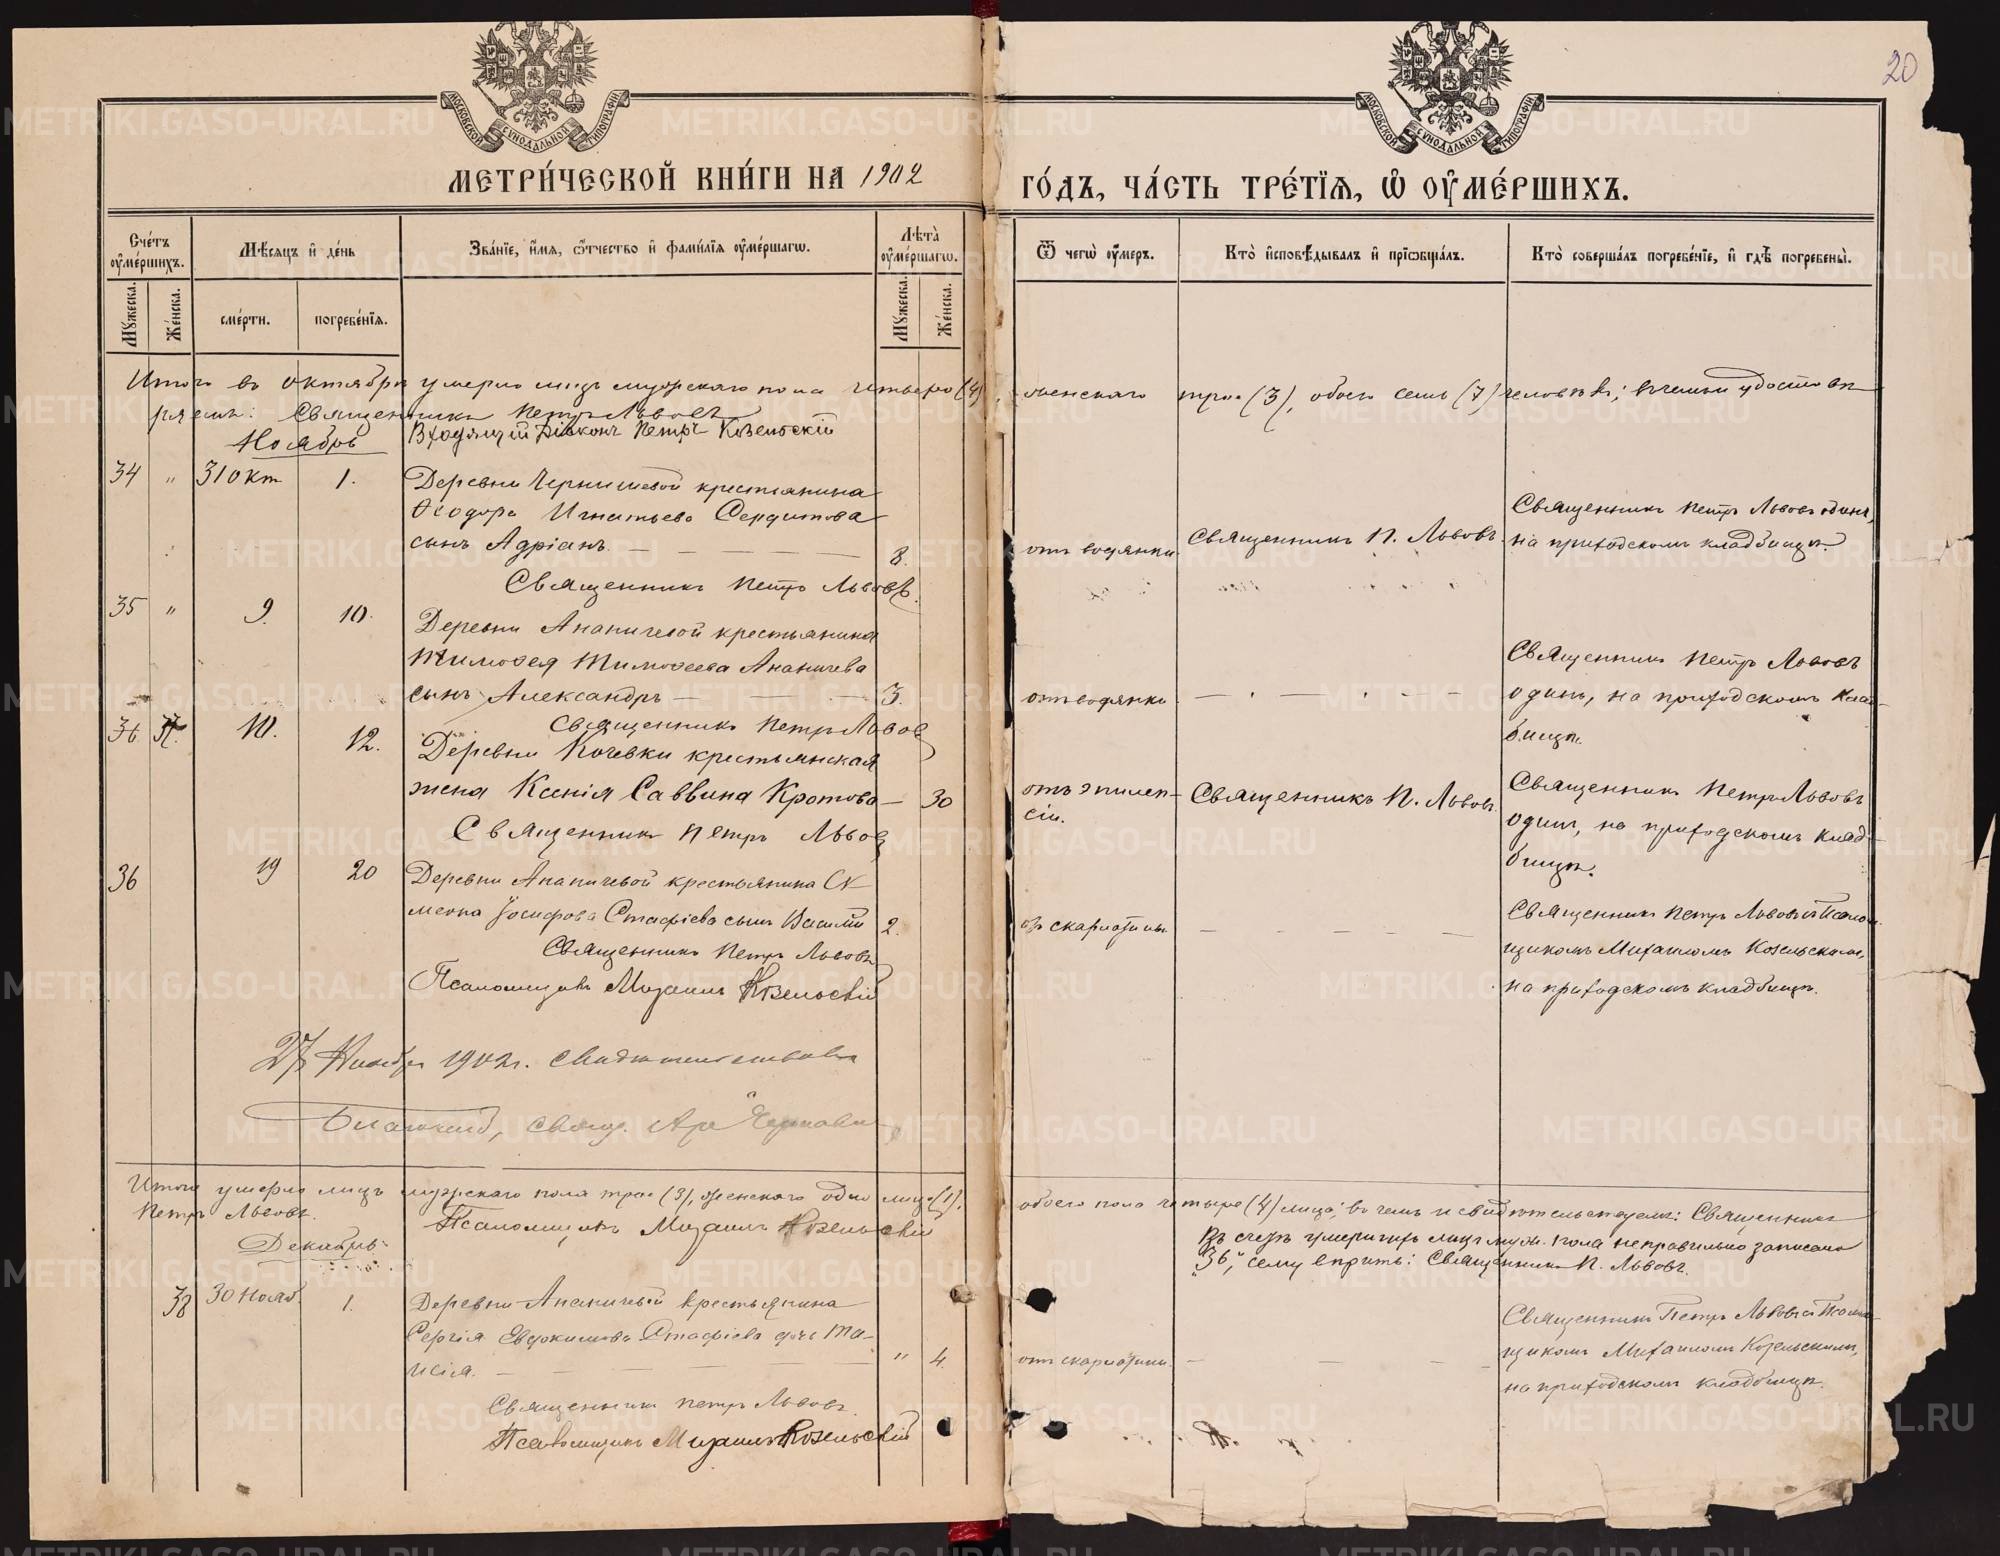 20
МОСКОВСКОЙ СѴНОДАЛЬНОЙ ТИПОГРАФІИ
МОСКОВСКОЙ СѴНОДАЛЬНОЙ ТИПОГРАФІИ
МЕТРИ́ЧЕСКОЙ КНИ́ГИ НА 1902
ГО́ДЪ, ЧА́СТЬ ТРЕ́ТІѦ, Ѡ҆ ОУ҆МЕ́РШИХЪ.
Сче́тъ оу҆ме́ршихъ.
Мѣ́сѧцъ и҆ де́нь
Зва́нїе, и҆́мѧ, ѻ҆́тчество и҆ фами́лїѧ оу҆ме́ршагѡ.
Лѣ́та̀ оу҆ме́ршагѡ.
Ѿ чегѡ̀ оу҆́меръ.
Кто̀ и҆сповѣ́дывалъ и҆ прїѡбща́лъ.
Кто̀ соверша́лъ погребе́нїе, и҆ гдѣ̀ погребены̀.
Мꙋ́жеска.
Же́нска.
сме́рти.
погребе́нїѧ.
Мꙋ́жеска.
Же́нска.
Итого въ октябрѣ умерло лицъ мужскаго пола четверо (4), женскаго трое (3), обоего семь (7) человѣкъ; въ чемъ и удостовѣ-
ряемъ: Священникъ Петръ Львовъ
Діаконъ Петръ Козельскій
Ноябрь
34 " 31 Окт 1. Деревни Чернышевой крестьянина
Ѳеодора Игнатьева Сердитова
сынъ Адріанъ — — — 8.
отъ водянки
Священникъ П. Львовъ
Священникъ Петръ Львовъ одинъ,
на приходскомъ кладбищѣ.
Священникъ Петръ Львовъ.
35 " 9. 10. Деревни Ананичевой крестьянина
Тимоѳея Тимоѳеева Ананичева
сынъ Александръ — — — 3.
отъ водянки
Священникъ Петръ Львовъ
одинъ, на приходскомъ клад-
бищѣ.
Священникъ Петръ Львовъ
36 37. 10. 12. Деревни Кочевки крестьянская
жена Ксенія Саввина Кротова — 30
отъ эпилеп-
сіи.
Священникъ П. Львовъ
Священникъ Петръ Львовъ
одинъ, на приходскомъ клад-
бищѣ.
Священникъ Петръ Львовъ
36 19 20 Деревни Ананичевой крестьянина Си-
меона Іосифова Стафіева сынъ Василій 2.
отъ скарлатины
Священникъ Петръ Львовъ съ Псалом-
щикомъ Михаиломъ Козельскимъ,
на приходскомъ кладбищѣ.
Священникъ Петръ Львовъ
Псаломщикъ Михаилъ Козельскій
27 Ноября 1902 г. свидѣтельствовалъ
Благочинный, свящ.
Итого умерло лицъ мужскаго пола трое (3), женскаго одно лицо (1). обоего пола четыре (4) лица; въ чемъ и свидѣтельствуемъ: Священникъ
Петръ Львовъ.
Псаломщикъ Михаилъ Козельскій
Въ счетъ умершихъ лицъ муж. пола неправильно записано
"36", сему вѣрить: Священникъ П. Львовъ.
Декабрь
38 30 Нояб. 1. Деревни Ананичевой крестьянина
Сергія Евдокимова Стафіева дочь Та-
исія. — — — " 4.
отъ скарлатины.
Священникъ Петръ Львовъ съ Псалом-
щикомъ Михаиломъ Козельскимъ,
на приходскомъ кладбищѣ.
Священникъ Петръ Львовъ.
Псаломщикъ Михаилъ Козельскій
METRIKI.GASO-URAL.RU